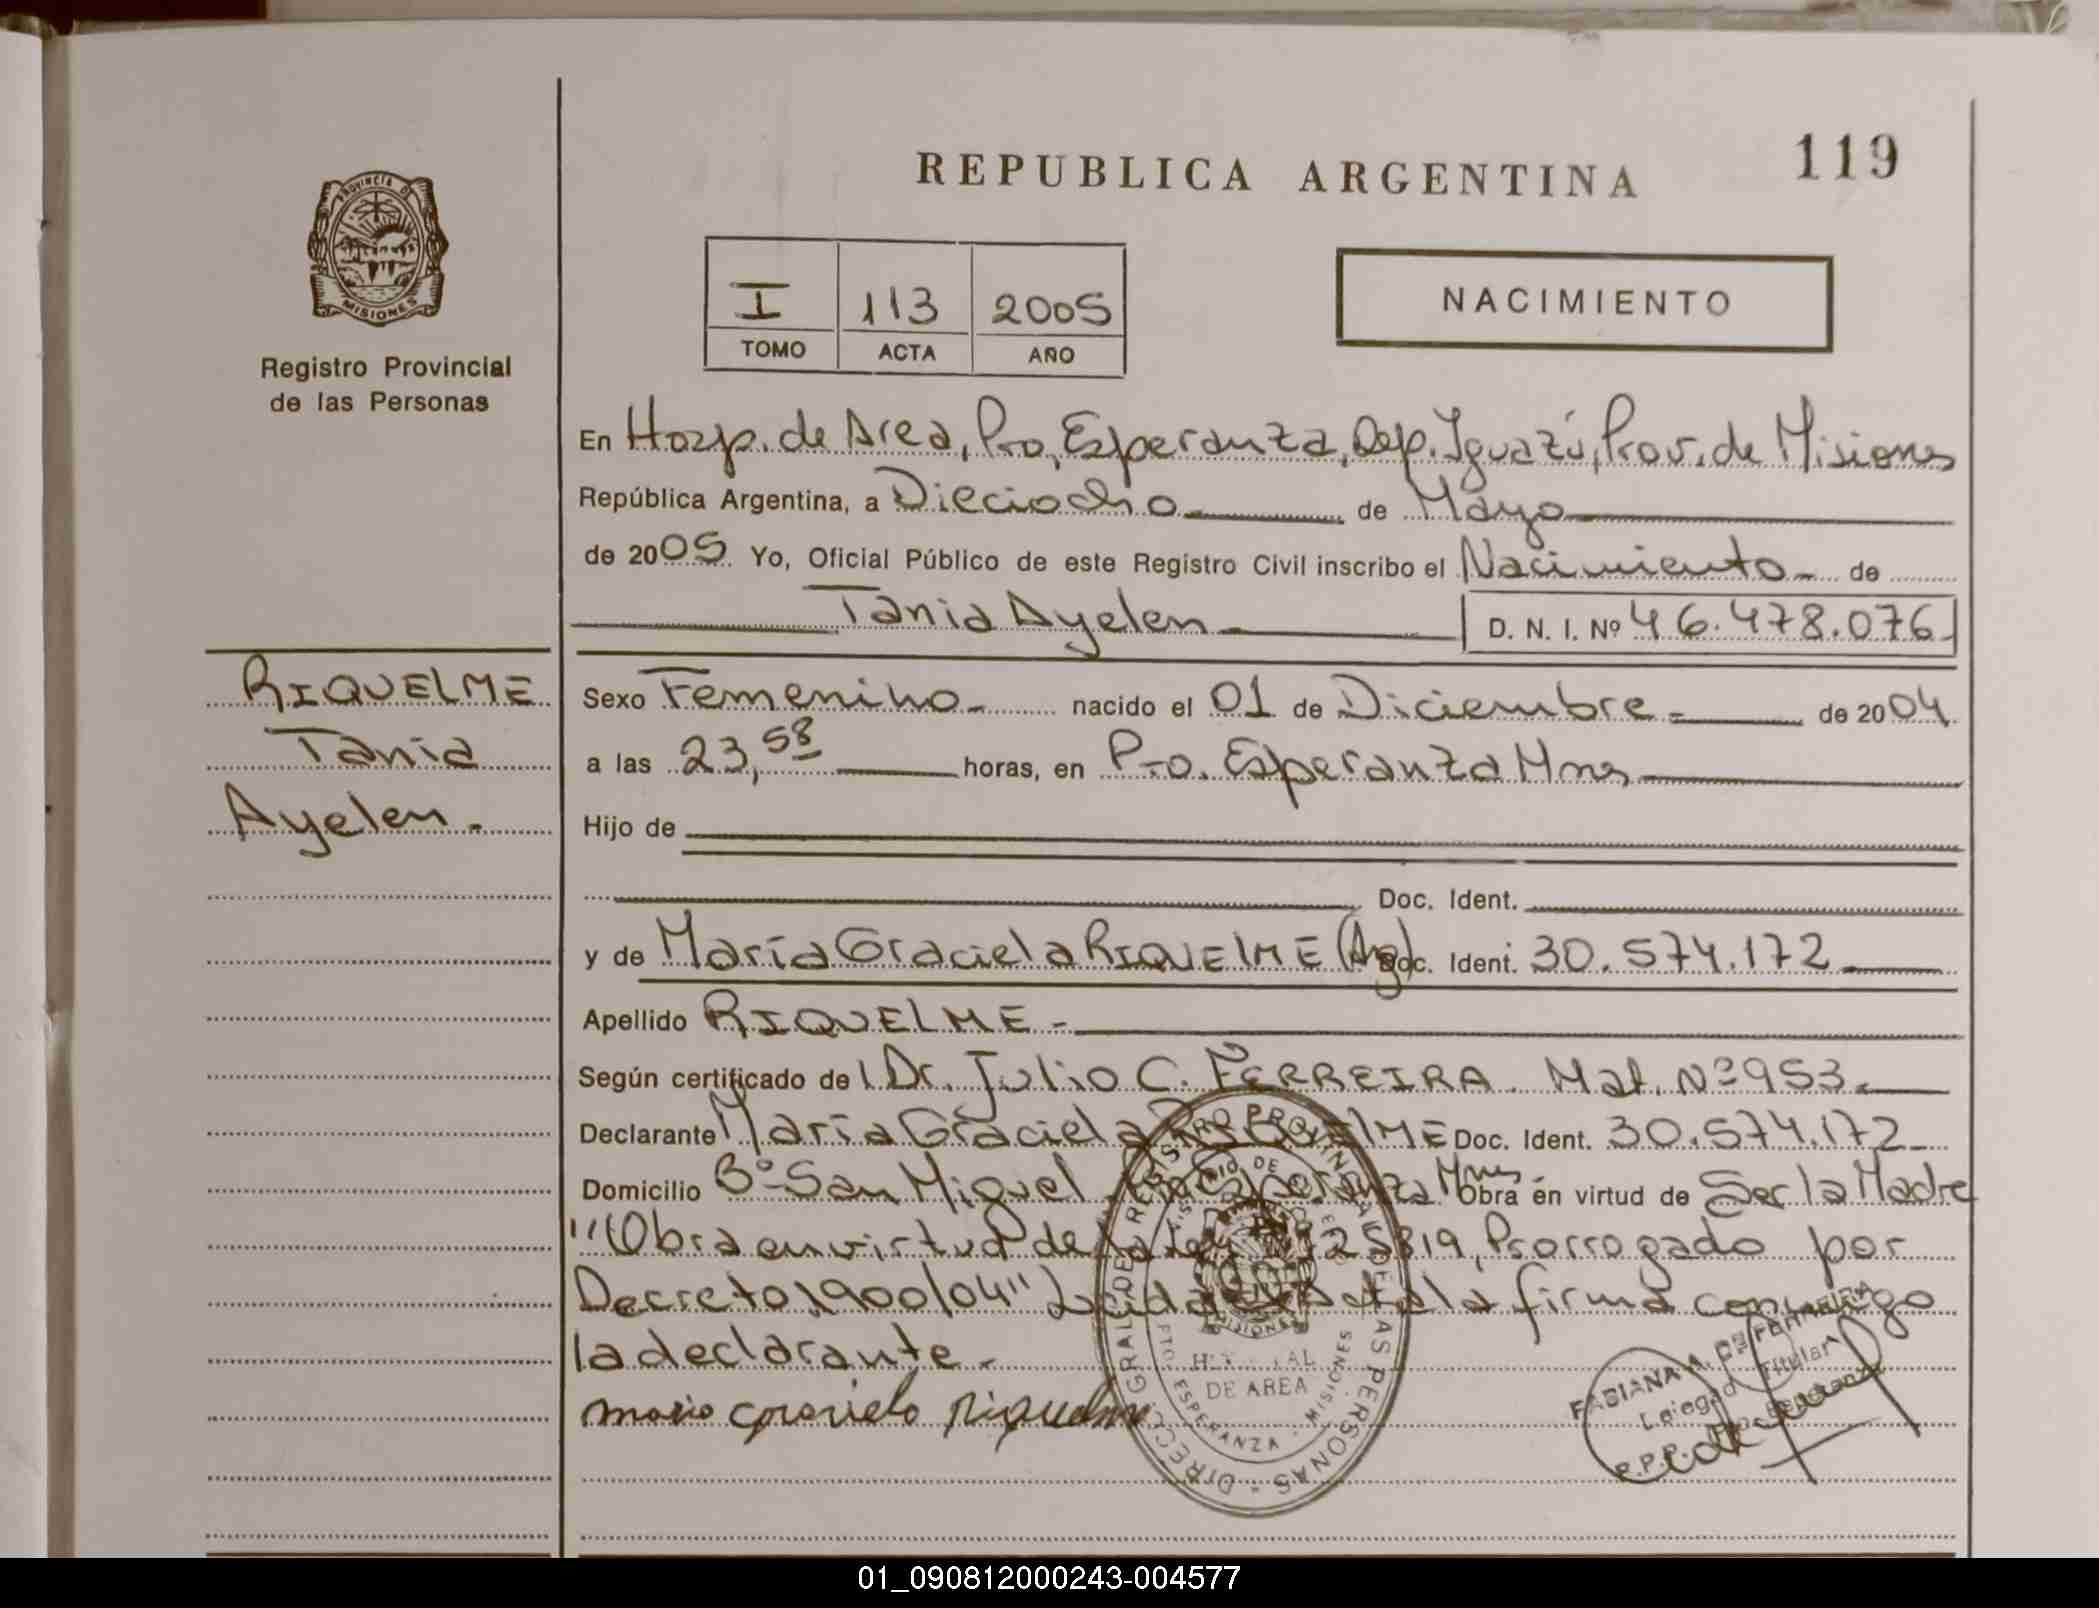 REPUBLICA ARGENTINA
119
PROVINCIA DE
MISIONES
Registro Provincial
de las Personas
I 113 2005
TOMO ACTA AÑO
NACIMIENTO
En Hosp. de Area, Pto, Esperanza, Dep. Iguazú, Prov. de Misiones
República Argentina, a Dieciocho de Mayo
de 2005 Yo, Oficial Público de este Registro Civil inscribo el Nacimiento de
Tania Ayelen
D. N. I. Nº 46.478.076
RIQUELME
Tania
Ayelen.
Sexo Femenino nacido el 01 de Diciembre de 2004
a las 23,58 horas, en Pto. Esperanza Mnes
Hijo de
Doc. Ident.
y de María Graciela RIQUELME (Arg) Doc. Ident. 30.574.172
Apellido RIQUELME
Según certificado de l Dr. Julio C. FERREIRA. Mat. Nº 953.
Declarante María Graciela RIQUELME Doc. Ident. 30.574.172
Domicilio Bº San Miguel, Pto Esperanza Mnes Obra en virtud de Ser la Madre
"Obra en virtud de la Ley 25819, Prorrogado por
Decreto 1900/04" Leida el Acta la firma conmigo
la declarante.
Maria Graciela Riquelme
DIRECC. GRAL. DE REGISTRO PROVINCIAL DE LAS PERSONAS
MISIONES
HOSPITAL
DE AREA
PTO. ESPERANZA - MISIONES
FABIANA A. FERREIRA
Titular
Pto. Esperanza
R.P.P.
01_090812000243-004577